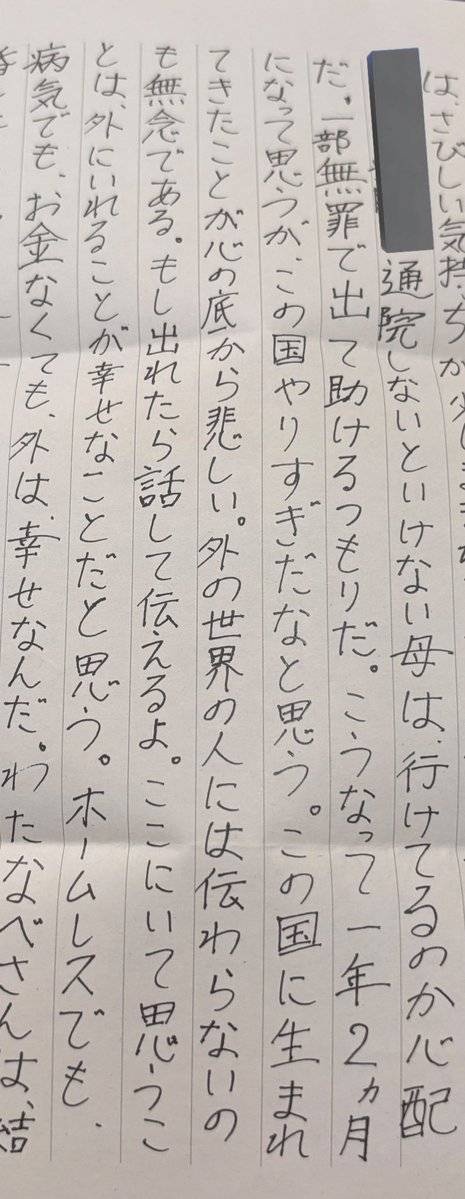 は、さびしい気持ちが少し
通院しないといけない母は、行けてるのか心配
だ。一部無罪で出て助けるつもりだ。こうなって一年2ヵ月
になって思うが、この国やりすぎだなと思う。この国に生まれ
てきたことが心の底から悲しい。外の世界の人には伝わらないの
も無念である。もし出れたら話して伝えるよ。ここにいて思うこ
とは、外にいれることが幸せなことだと思う。ホームレスでも、
病気でも、お金なくても、外は、幸せなんだ。わたなべさんは、結